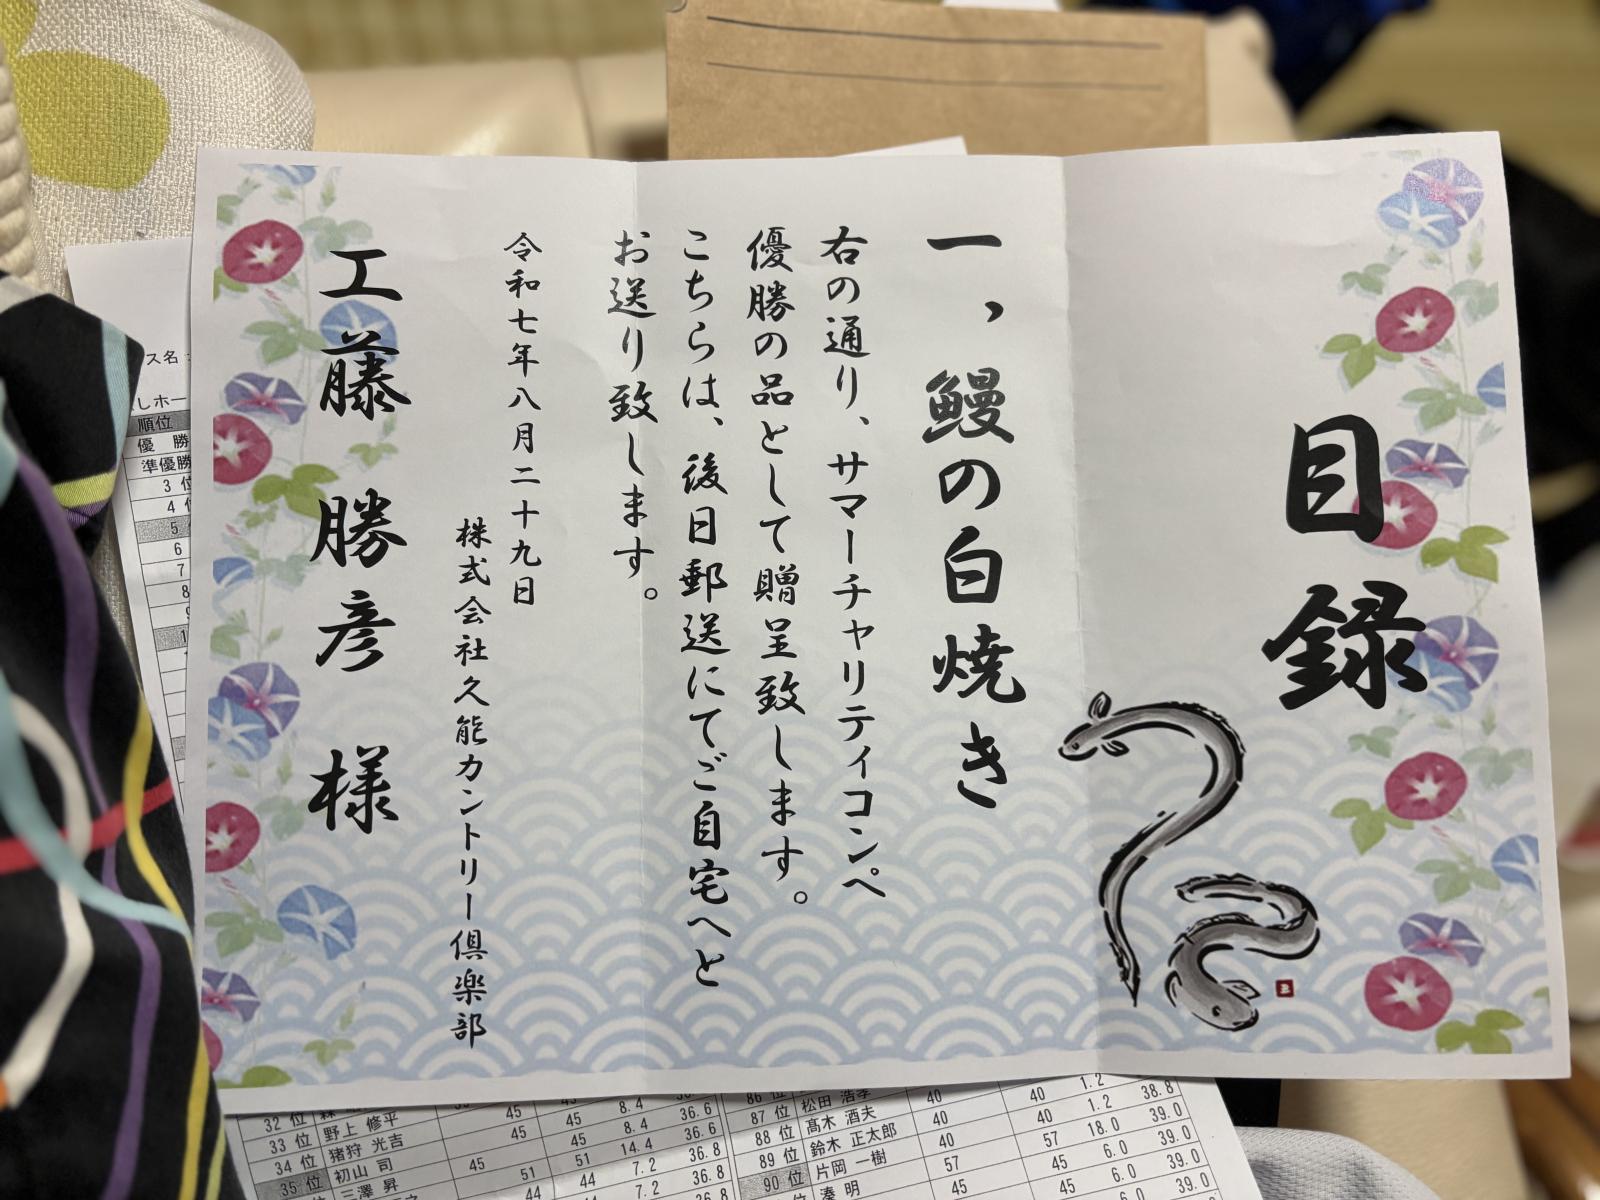 目録
一、鰻の白焼き
右の通り、サマーチャリティコンペ
優勝の品として贈呈致します。
こちらは、後日郵送にてご自宅へと
お送り致します。
令和七年八月二十九日
株式会社久能カントリー倶楽部
工藤 勝彦 様
ス名
しホー
順位
優 勝
準優勝
3 位
4 位
5
6
7
8
32 位
33 位 野上 修平 45 45 8.4 36.6
34 位 猪狩 光吉 45 45 8.4 36.6
35 位 初山 司 45 51 14.4 36.8
三澤 昇 51 44 7.2 36.8
44 44 7.2 36.8
86 位 松田 浩孝 40 40 1.2 38.8
87 位 髙木 酒夫 40 40 1.2 39.0
88 位 鈴木 正太郎 40 57 18.0 39.0
89 位 片岡 一樹 57 45 6.0 39.0
90 位 湊 明 45 45 6.0 39.0